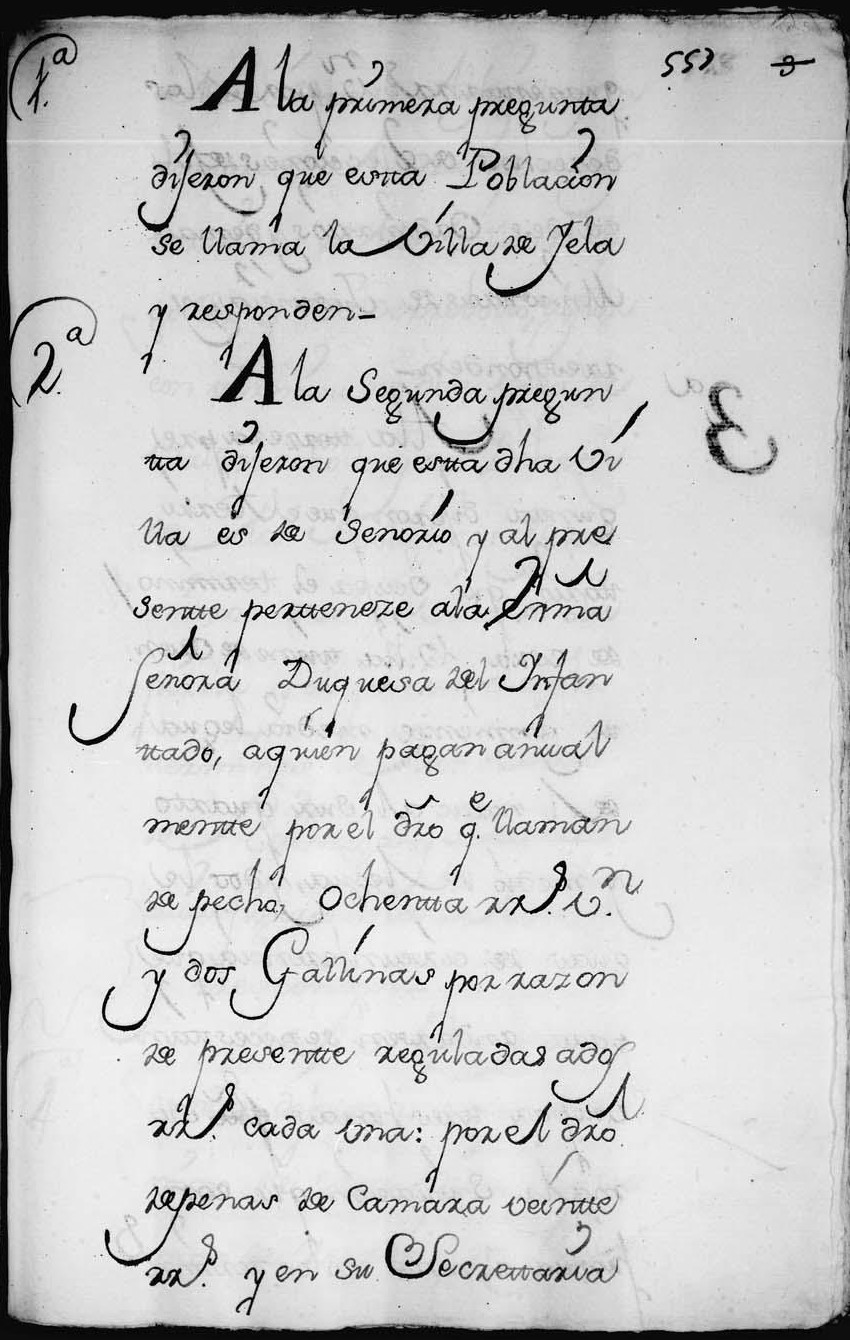 557
1.ª
A la primera pregunta
dijeron que estta Poblacion
se llama la Villa de Jela
y responden=
2.ª
A la Segunda pregun
tta dijeron que estta dha Vi
lla es de Señorio y al pre
sentte pertteneze ala Exma
Señora Duquesa del Infan
ttado, aquien pagan anual
mentte por el dro q.e llaman
de pecho, Ochentta rr.s v.n
y dos Gallinas por razon
de presentte reguladas ados
rr.s cada una: por el dro
de penas de Camara veintte
rr.s y en su Secrettaria